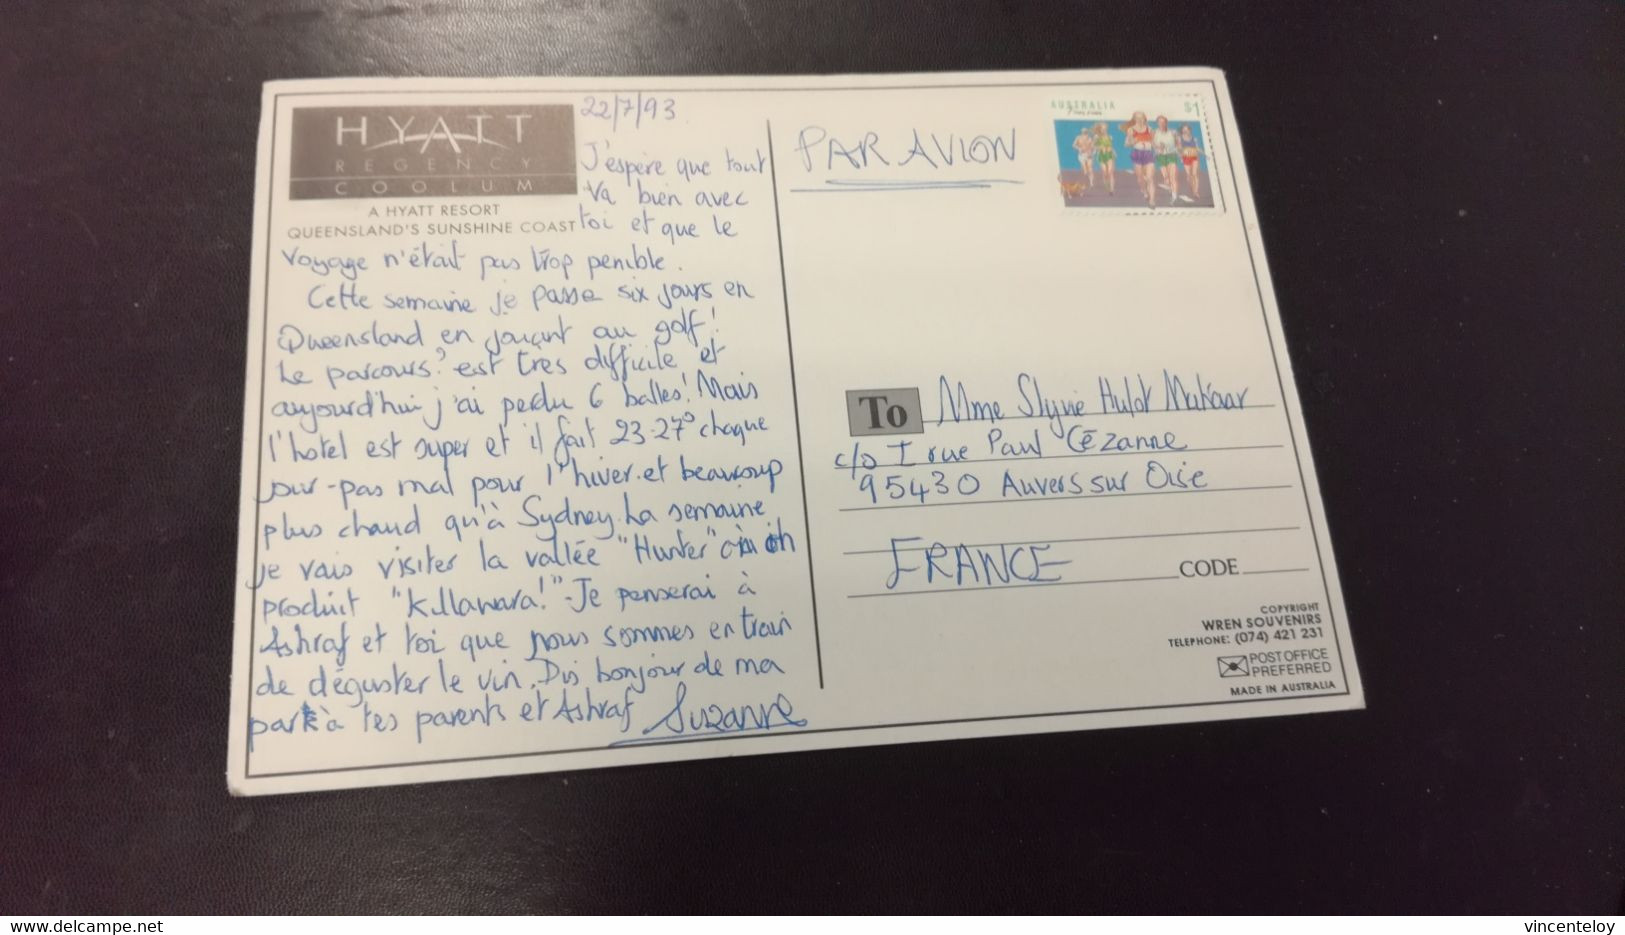 HYATT
REGENCY
COOLUM
A HYATT RESORT
QUEENSLAND'S SUNSHINE COAST
22/7/93
J'espère que tout
va bien avec
toi et que le
voyage n'était pas trop penible.
Cette semaine je passe six jours en
Queensland en jouant au golf!
Le parcours? est très difficile et
aujourd'hui j'ai perdu 6 balles! Mais
l'hotel est super et il fait 23-27° chaque
jour - pas mal pour l'hiver et beaucoup
plus chaud qu'à Sydney. La semaine
je vais visiter la vallée "Hunter" on
produit "Killawara!" - Je penserai à
Ashraf et toi que nous sommes en train
de déguster le vin. Dis bonjour de ma
part à tes parents et Ashraf Suzanne
PAR AVION
AUSTRALIA $1
To Mme Slyvie Hulot Makaar
c/o I rue Paul Cézanne
95430 Auvers sur Oise
FRANCE CODE
COPYRIGHT
WREN SOUVENIRS
TELEPHONE: (074) 421 231
POST OFFICE
PREFERRED
MADE IN AUSTRALIA
delcampe.net
vincenteloy